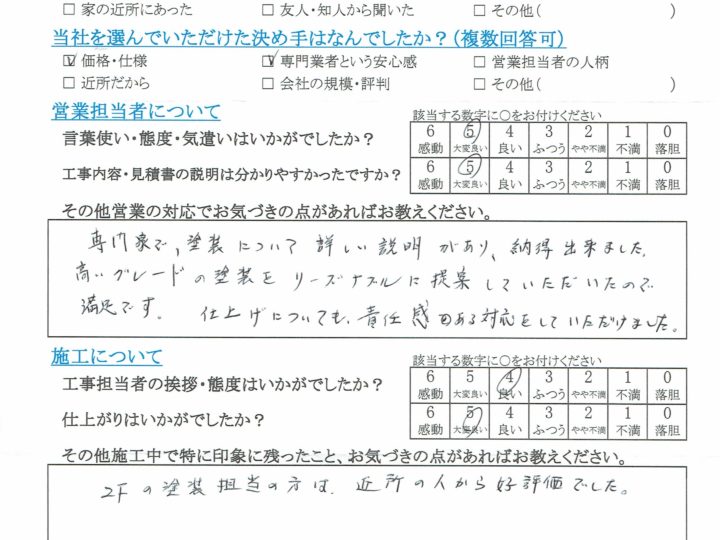 □ 家の近所にあった □ 友人・知人から聞いた □ その他( )
当社を選んでいただけた決め手はなんでしたか？（複数回答可）
☑ 価格・仕様 ☑ 専門業者という安心感 □ 営業担当者の人柄
□ 近所だから □ 会社の規模・評判 □ その他( )
営業担当者について 該当する数字に○をお付けください
言葉使い・態度・気遣いはいかがでしたか？ 6 5 4 3 2 1 0
感動 大変良い 良い ふつう やや不満 不満 落胆
工事内容・見積書の説明は分かりやすかったですか？ 6 5 4 3 2 1 0
感動 大変良い 良い ふつう やや不満 不満 落胆
その他営業の対応でお気づきの点があればお教えください。
専門家で、塗装について詳しい説明があり、納得出来ました。
高いグレードの塗装をリーズナブルに提案していただいたので
満足です。 仕上げについても、責任感のある対応をしていただけました。
施工について 該当する数字に○をお付けください
工事担当者の挨拶・態度はいかがでしたか？ 6 5 4 3 2 1 0
感動 大変良い 良い ふつう やや不満 不満 落胆
仕上がりはいかがでしたか？ 6 5 4 3 2 1 0
感動 大変良い 良い ふつう やや不満 不満 落胆
その他施工中で特に印象に残ったこと、お気づきの点があればお教えください。
2Fの塗装担当の方は、近所の人から好評価でした。